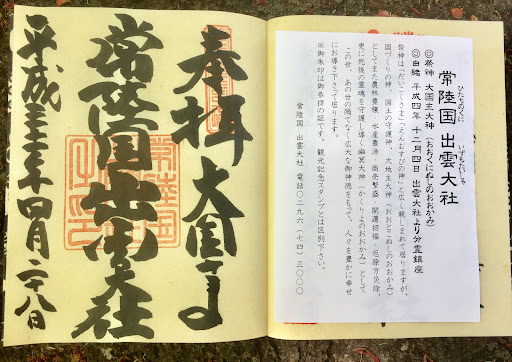 常陸国 出雲大社
ひたちのくに いずもたいしゃ
◎祭神 大国主大神(おおくにぬしのおおかみ)
◎由緒 平成四年 十二月四日 出雲大社より分霊鎮座
祭神は「だいこくさま」「えんむすびの神」と広く親しまれて居りますが、
国づくりの神、国土の守護神、大地主大神(おおとこぬしのおおかみ)
としてまた農林豊穣・水産豊漁・商売繁盛・開運招福・厄除方災除、
更に死後の霊魂を守護し導く幽冥大神(かくりよのおおかみ)として
この世、あの世の隔てなく広大な御神徳をもって、人々を豊かに幸せ
にお導き下さって居ります。
※御朱印は御参拝の証です。観光記念スタンプとは区別下さい。
常陸国 出雲大社 電話〇二九六(七四)三〇〇〇
奉拝 大国さま
常陸国出雲大社
平成三十年四月二十八日